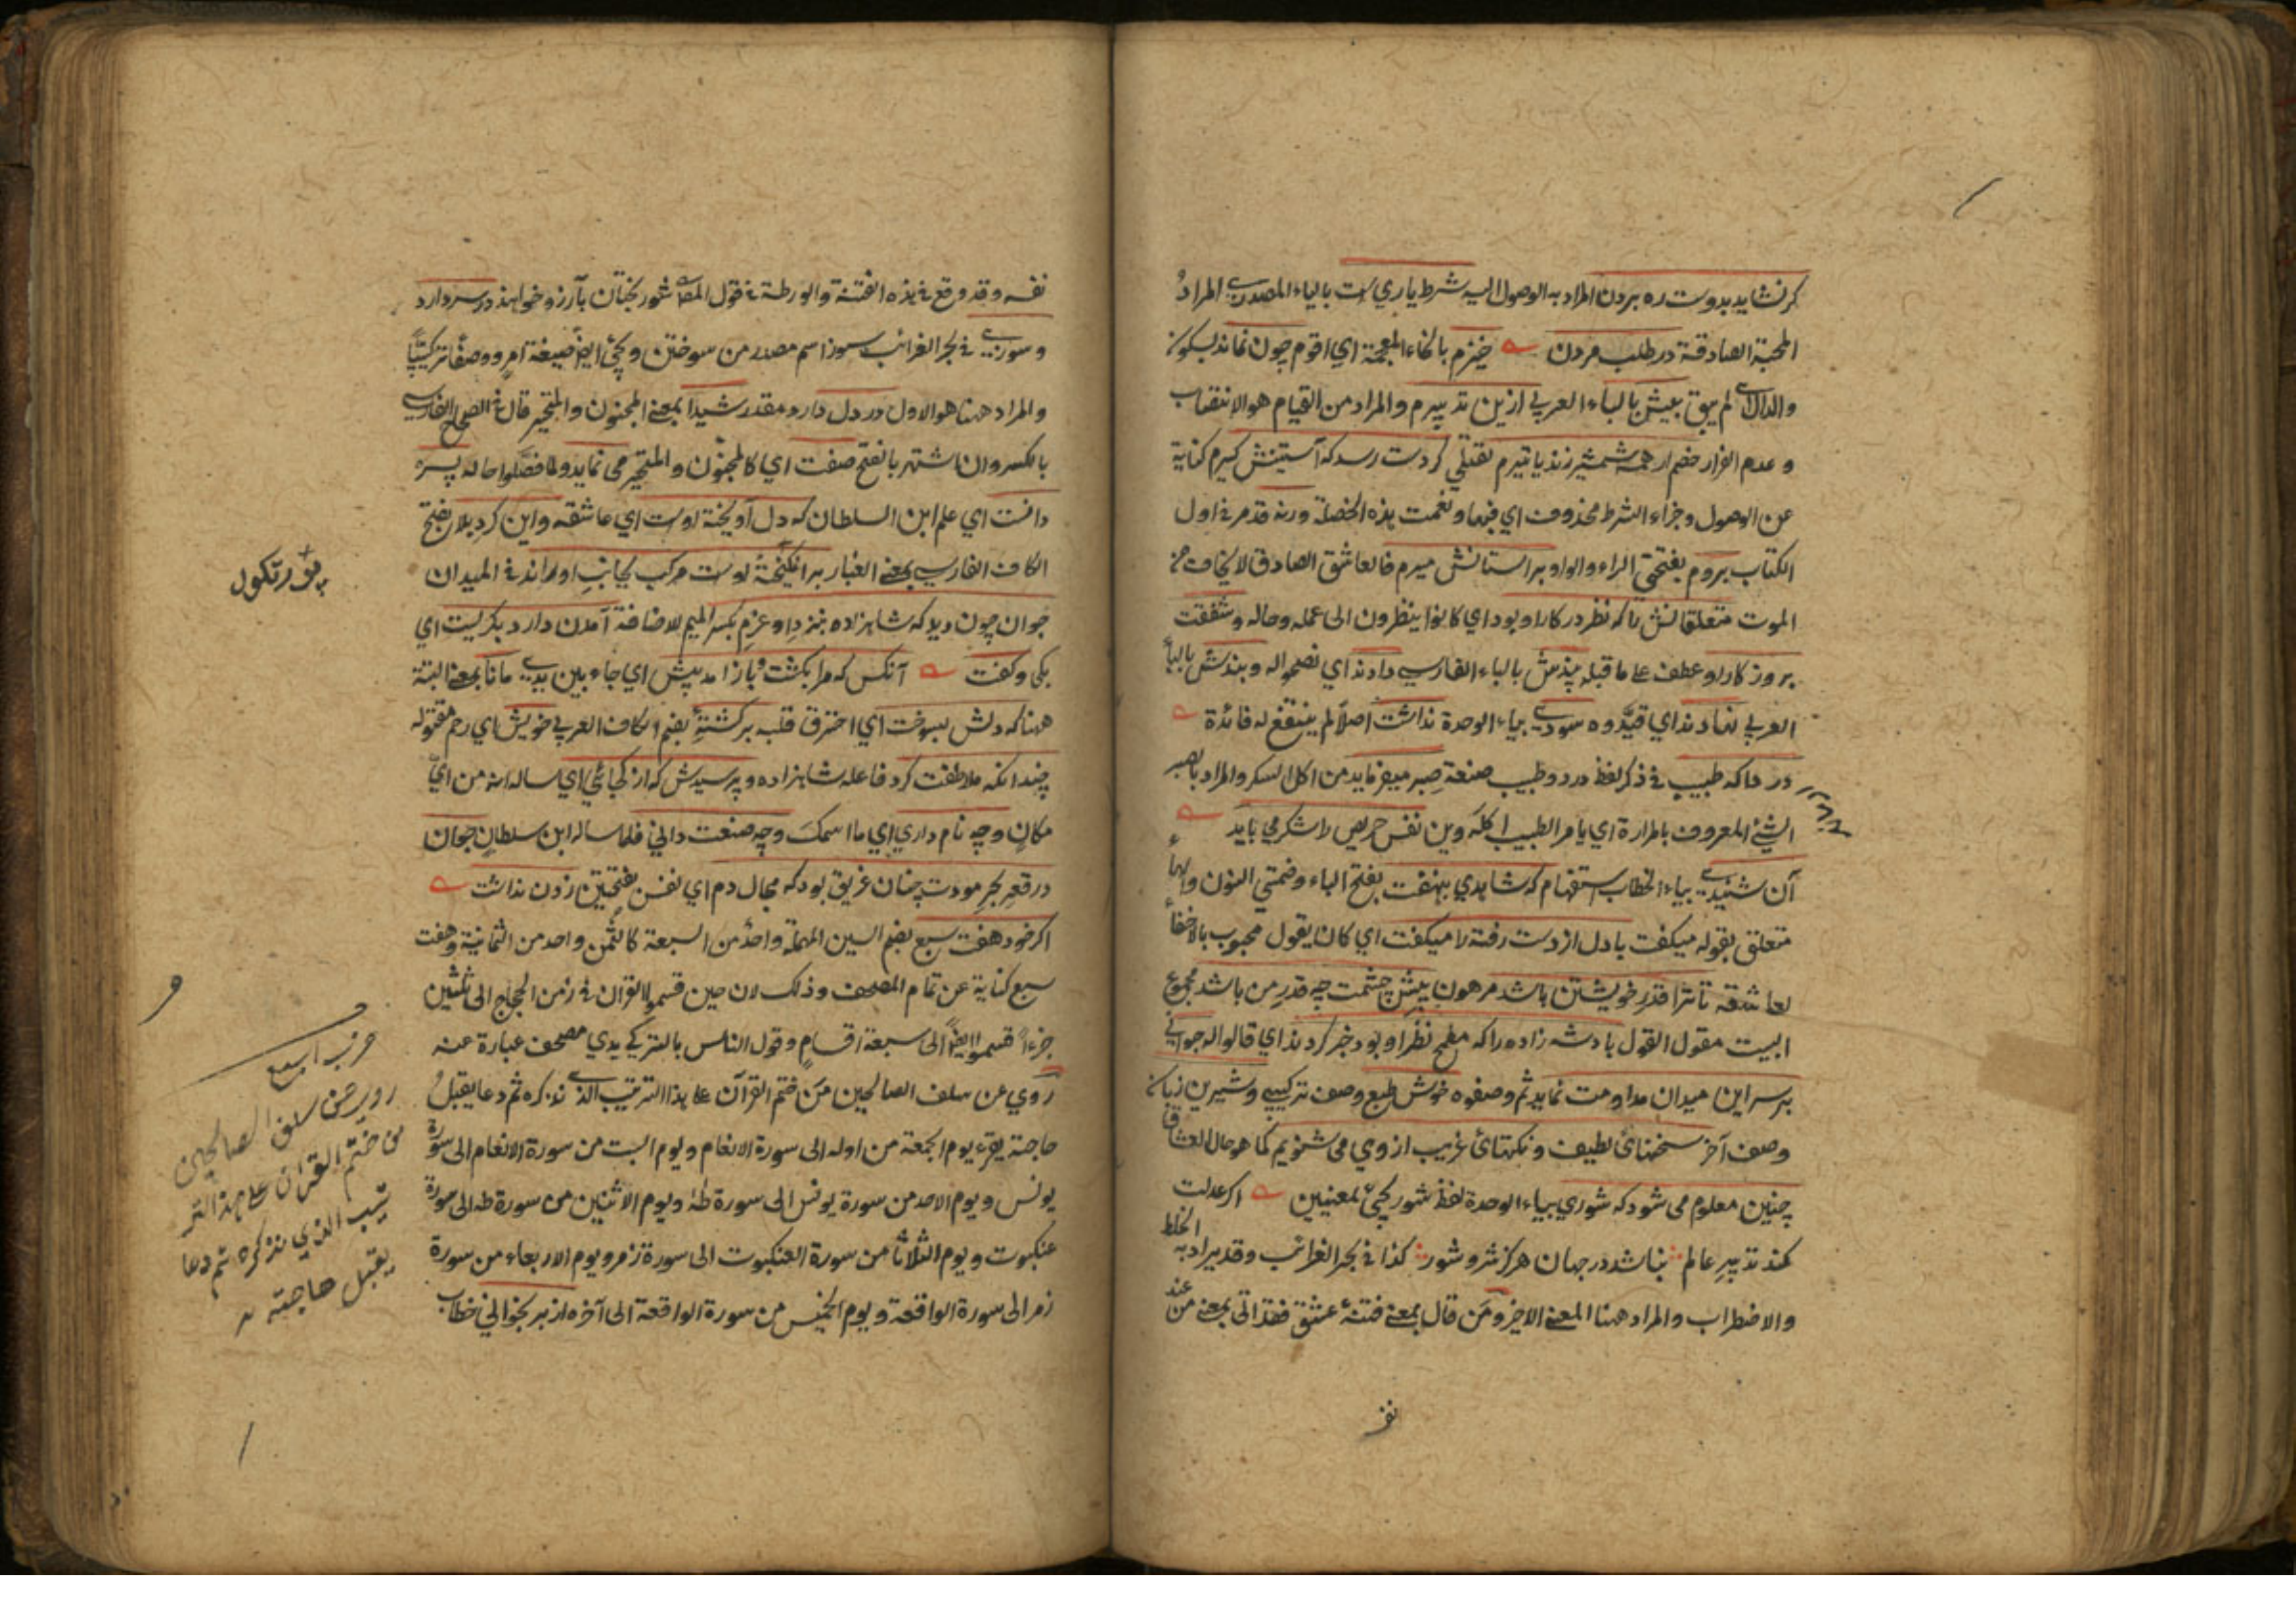 کر نشاید بدوست ره بردن المراد به الوصول الیه شرط یاری است بالیاء المصدریة المراد
المحبة الصادقة در طلب مردن خیزم بالخاء المعجمة ای اقوم چون نماند بسکون
والدال ای لم یبق بیش بالباء العربی ازین تدبیرم والمراد من القیام هو الانتصاب
و عدم الفرار خصم ار همه شمشیر زند یا تیرم بقتلی کر دست رسد که آستینش کیرم کنایة
عن الوصول وجزاء الشرط محذوف ای فبها ونعمت هذه الخصلة ورنه قد مر فی اول
الکتاب بروم بفتحتی الراء والواو بر استانش میرم فالعاشق الصادق لا یخاف من
الموت متعلقانش را که نظر در کار او بود ای کانوا ینظرون الی عمله وحاله وشفقت
بروزکار او عطف علی ما قبله پندش بالباء الفارسی دادند ای نصحوا له وبندش بالباء
العربی نهادند ای قیدوه سودی بیاء الوحدة نداشت اصلا لم ینتفع له فائدة
دردا که طبیب فی ذکر لفظ درد وطبیب صنعة صبر میفرماید من اکل السکر والمراد بالصبر
الشیء المعروف بالمرارة ای یامر الطبیب اکله وین نفس حریص را شکر می باید
آن شنیدی بیاء الخطاب استفهام که شاهدی بنهفت بفتح الباء وضمتی النون والهاء
متعلق بقوله میکفت با دل از دست رفته را میکفت ای کان یقول محبوب بالاخفاء
لعاشقه تا ترا قدر خویشتن باشد مرهون پیش چشمت چه قدر من باشد مجموع
البیت مقول القول پادشه زاده را که مطمح نظر او بود خبر کردند ای قالوا له جوانی
بر سر این میدان مداومت نماید ثم وصفوه خوش طبع وصف ترکیبی وشیرین زبان
وصف آخر سخنهائ لطیف ونکتهائ غریب از وی می شنویم کما هو حال العشاق
چنین معلوم می شود که شوری بیاء الوحدة لفظ شور یجیء لمعنیین اکر عدلت
کند تدبیر عالم نباشد در جهان هرکز شر و شور کذا فی بحر الغرائب وقد یراد به الخلط
والاضطراب والمراد ههنا المعنی الاخیر ومن قال بمعنی فتنهٔ عشق فقد اتی بمعنی من عند
نفـ
نفسه وقد وقع فی هذه الفتنة والورطة فی قول المص شوربختان بآرزو خواهند در سر دارد
وسوزی فی بحر الغرائب سوز اسم مصدر من سوختن ویجیء ایضا صیغة امر ووصفا ترکیبیا
والمراد ههنا هو الاول در دل دارد مقدر شیدا بمعنی المجنون والمتحیر قال فی الصحاح الفارسی
بالکسر وان اشتهر بالفتح صفت ای کالمجنون والمتحیر می نماید ولما فصلوا حاله پسره
دانست ای علم ابن السلطان که دل آویختهٔ اوست ای عاشقه واین کرد بلا بفتح
الکاف الفارسی بمعنی الغبار برانکیختهٔ اوست مرکب بجانب او راند فی المیدان
جوان چون دید که شاهزاده بنزد او عزم بکسر المیم للاضافة آمدن دارد بکریست ای
بکی وکفت آنکس که مرا بکشت وباز آمد پیش ای جاء بین یدی مانا بمعنی البتة
ههنا که دلش بسوخت ای احترق قلبه بر کشتهٔ بضم الکاف العربی خویش ای رحم مقتوله
چندانکه ملاطفت کرد فاعله شاهزاده وپرسیدش که از کجائی ای ساله انه من ای
مکان وچه نام داری ای ما اسمک وچه صنعت دانی فلما ساله ابن سلطان جوان
در قعر بحر مودت چنان غریق بود که مجال دم ای نفس بفتحتین زدن نداشت
اکر خود هفت سبع بضم السین المهملة واحد من السبعة کالثمن واحد من الثمانیة وهفت
سبع کنایة عن تمام المصحف وذلک لان حین قسموا القرآن فی زمن الحجاج الی ثلثین
جزءا قسموا ایضا الی سبعة اقسام وقول الناس بالترکی یدی مصحف عبارة عنه
روی عن سلف الصالحین من ختم القرآن علی هذا الترتیب الذی نذکره ثم دعا یقبل
حاجته یقرء یوم الجمعة من اوله الی سورة الانعام ویوم السبت من سورة الانعام الی سورة
یونس ویوم الاحد من سورة یونس الی سورة طه ویوم الاثنین من سورة طه الی سورة
عنکبوت ویوم الثلاثا من سورة العنکبوت الی سورة زمر ویوم الاربعاء من سورة
زمر الی سورة الواقعة ویوم الخمیس من سورة الواقعة الی آخره از بر بخوانی خطاب
روی عن سلف الصالحین
من ختم القرآن علی هذا التر
تیب الذی نذکره ثم دعا
یقبل حاجته